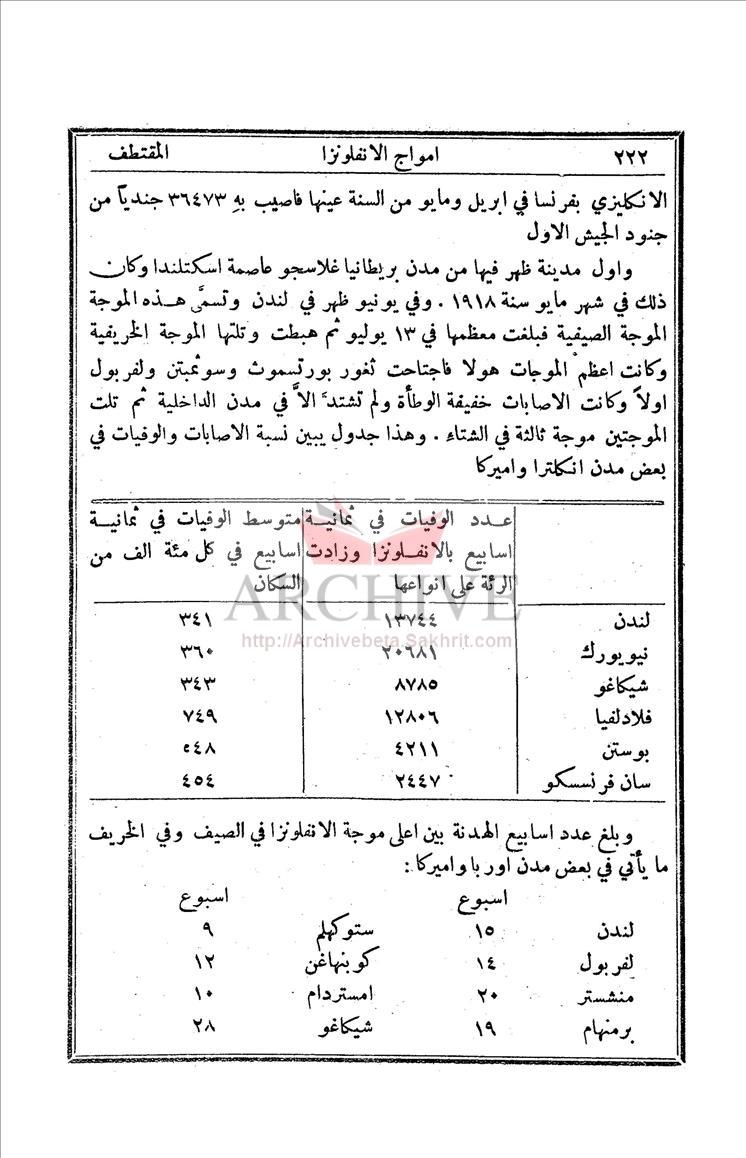 ٢٢٢ امواج الانفلونزا المقتطف
الانكليزي بفرنسا في ابريل ومايو من السنة عينها فاصيب بهِ ٣٦٤٧٣ جندياً من
جنود الجيش الاول
واول مدينة ظهر فيها من مدن بريطانيا غلاسجو عاصمة اسكتلندا وكان
ذلك في شهر مايو سنة ١٩١٨ . وفي يونيو ظهر في لندن وتسمَّى هذه الموجة
الموجة الصيفية فبلغت معظمها في ١٣ يوليو ثم هبطت وتلتها الموجة الخريفية
وكانت اعظم الموجات هولا فاجتاحت ثغور بورتسموث وسوثمبتن ولفربول
اولاً وكانت الاصابات خفيفة الوطأة ولم تشتدَّ الاَّ في مدن الداخلية ثم تلت
الموجتين موجة ثالثة في الشتاء . وهذا جدول يبين نسبة الاصابات والوفيات في
بعض مدن انكلترا واميركا
عدد الوفيات في ثمانية متوسط الوفيات في ثمانية
اسابيع بالانفلونزا وزادت اسابيع في كل مئة الف من
الرئة على انواعها السكان
لندن ١٣٧٤٤ ٣٤١
نيويورك ٢٠٦٨١ ٣٦٠
شيكاغو ٨٧٨٥ ٣٤٣
فلادلفيا ١٢٨٠٦ ٧٤٩
بوستن ٤٢١١ ٥٤٨
سان فرنسسكو ٢٤٤٧ ٤٥٤
وبلغ عدد اسابيع الهدنة بين اعلى موجة الانفلونزا في الصيف وفي الخريف
ما يأتي في بعض مدن اوربا واميركا :
اسبوع اسبوع
لندن ١٥ ستوكهلم ٩
لفربول ١٤ كوبنهاغن ١٢
منشستر ٢٠ امستردام ١٠
برمنهام ١٩ شيكاغو ٢٨
ARCHIVE
http://Archivebeta.Sakhrit.com